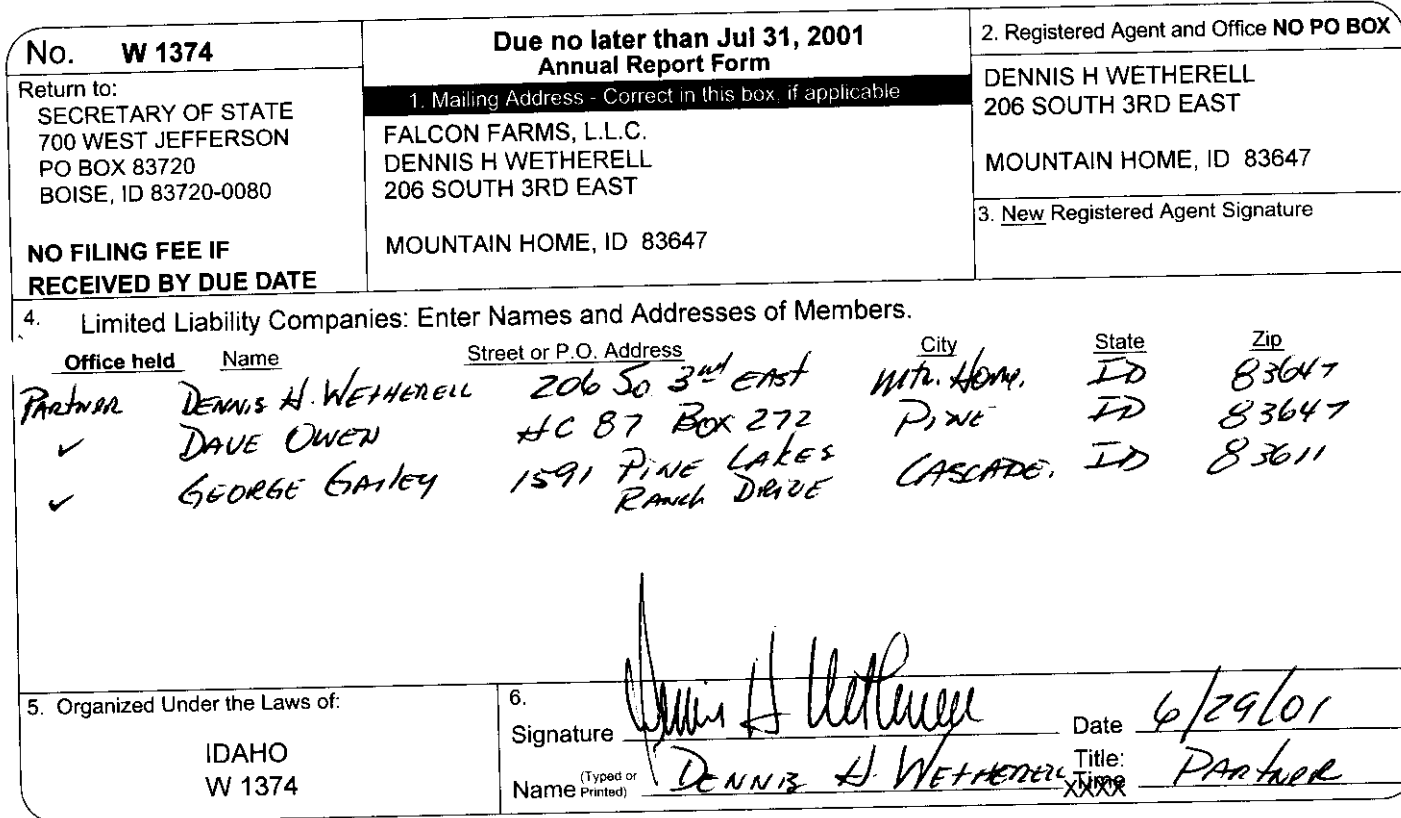 No. W 1374
Return to:
SECRETARY OF STATE
700 WEST JEFFERSON
PO BOX 83720
BOISE, ID 83720-0080
NO FILING FEE IF
RECEIVED BY DUE DATE
Due no later than Jul 31, 2001
Annual Report Form
1. Mailing Address - Correct in this box, if applicable
FALCON FARMS, L.L.C.
DENNIS H WETHERELL
206 SOUTH 3RD EAST
MOUNTAIN HOME, ID 83647
2. Registered Agent and Office NO PO BOX
DENNIS H WETHERELL
206 SOUTH 3RD EAST
MOUNTAIN HOME, ID 83647
3. New Registered Agent Signature
4. Limited Liability Companies: Enter Names and Addresses of Members.
Office held Name Street or P.O. Address City State Zip
PARTNER DENNIS H. WETHERELL 206 So 3rd EAST Mtn. Home. ID 83647
✓ DAVE OWEN HC 87 BOX 272 PINE ID 83647
✓ GEORGE GAILEY 1591 PINE LAKES CASCADE. ID 83611
RANCH DRIVE
5. Organized Under the Laws of:
IDAHO
W 1374
6.
Signature Dennis H Wetherell Date 6/29/01
Name (Typed or Printed) DENNIS H. WETHERELL Title: PARTNER
Time
XXXX